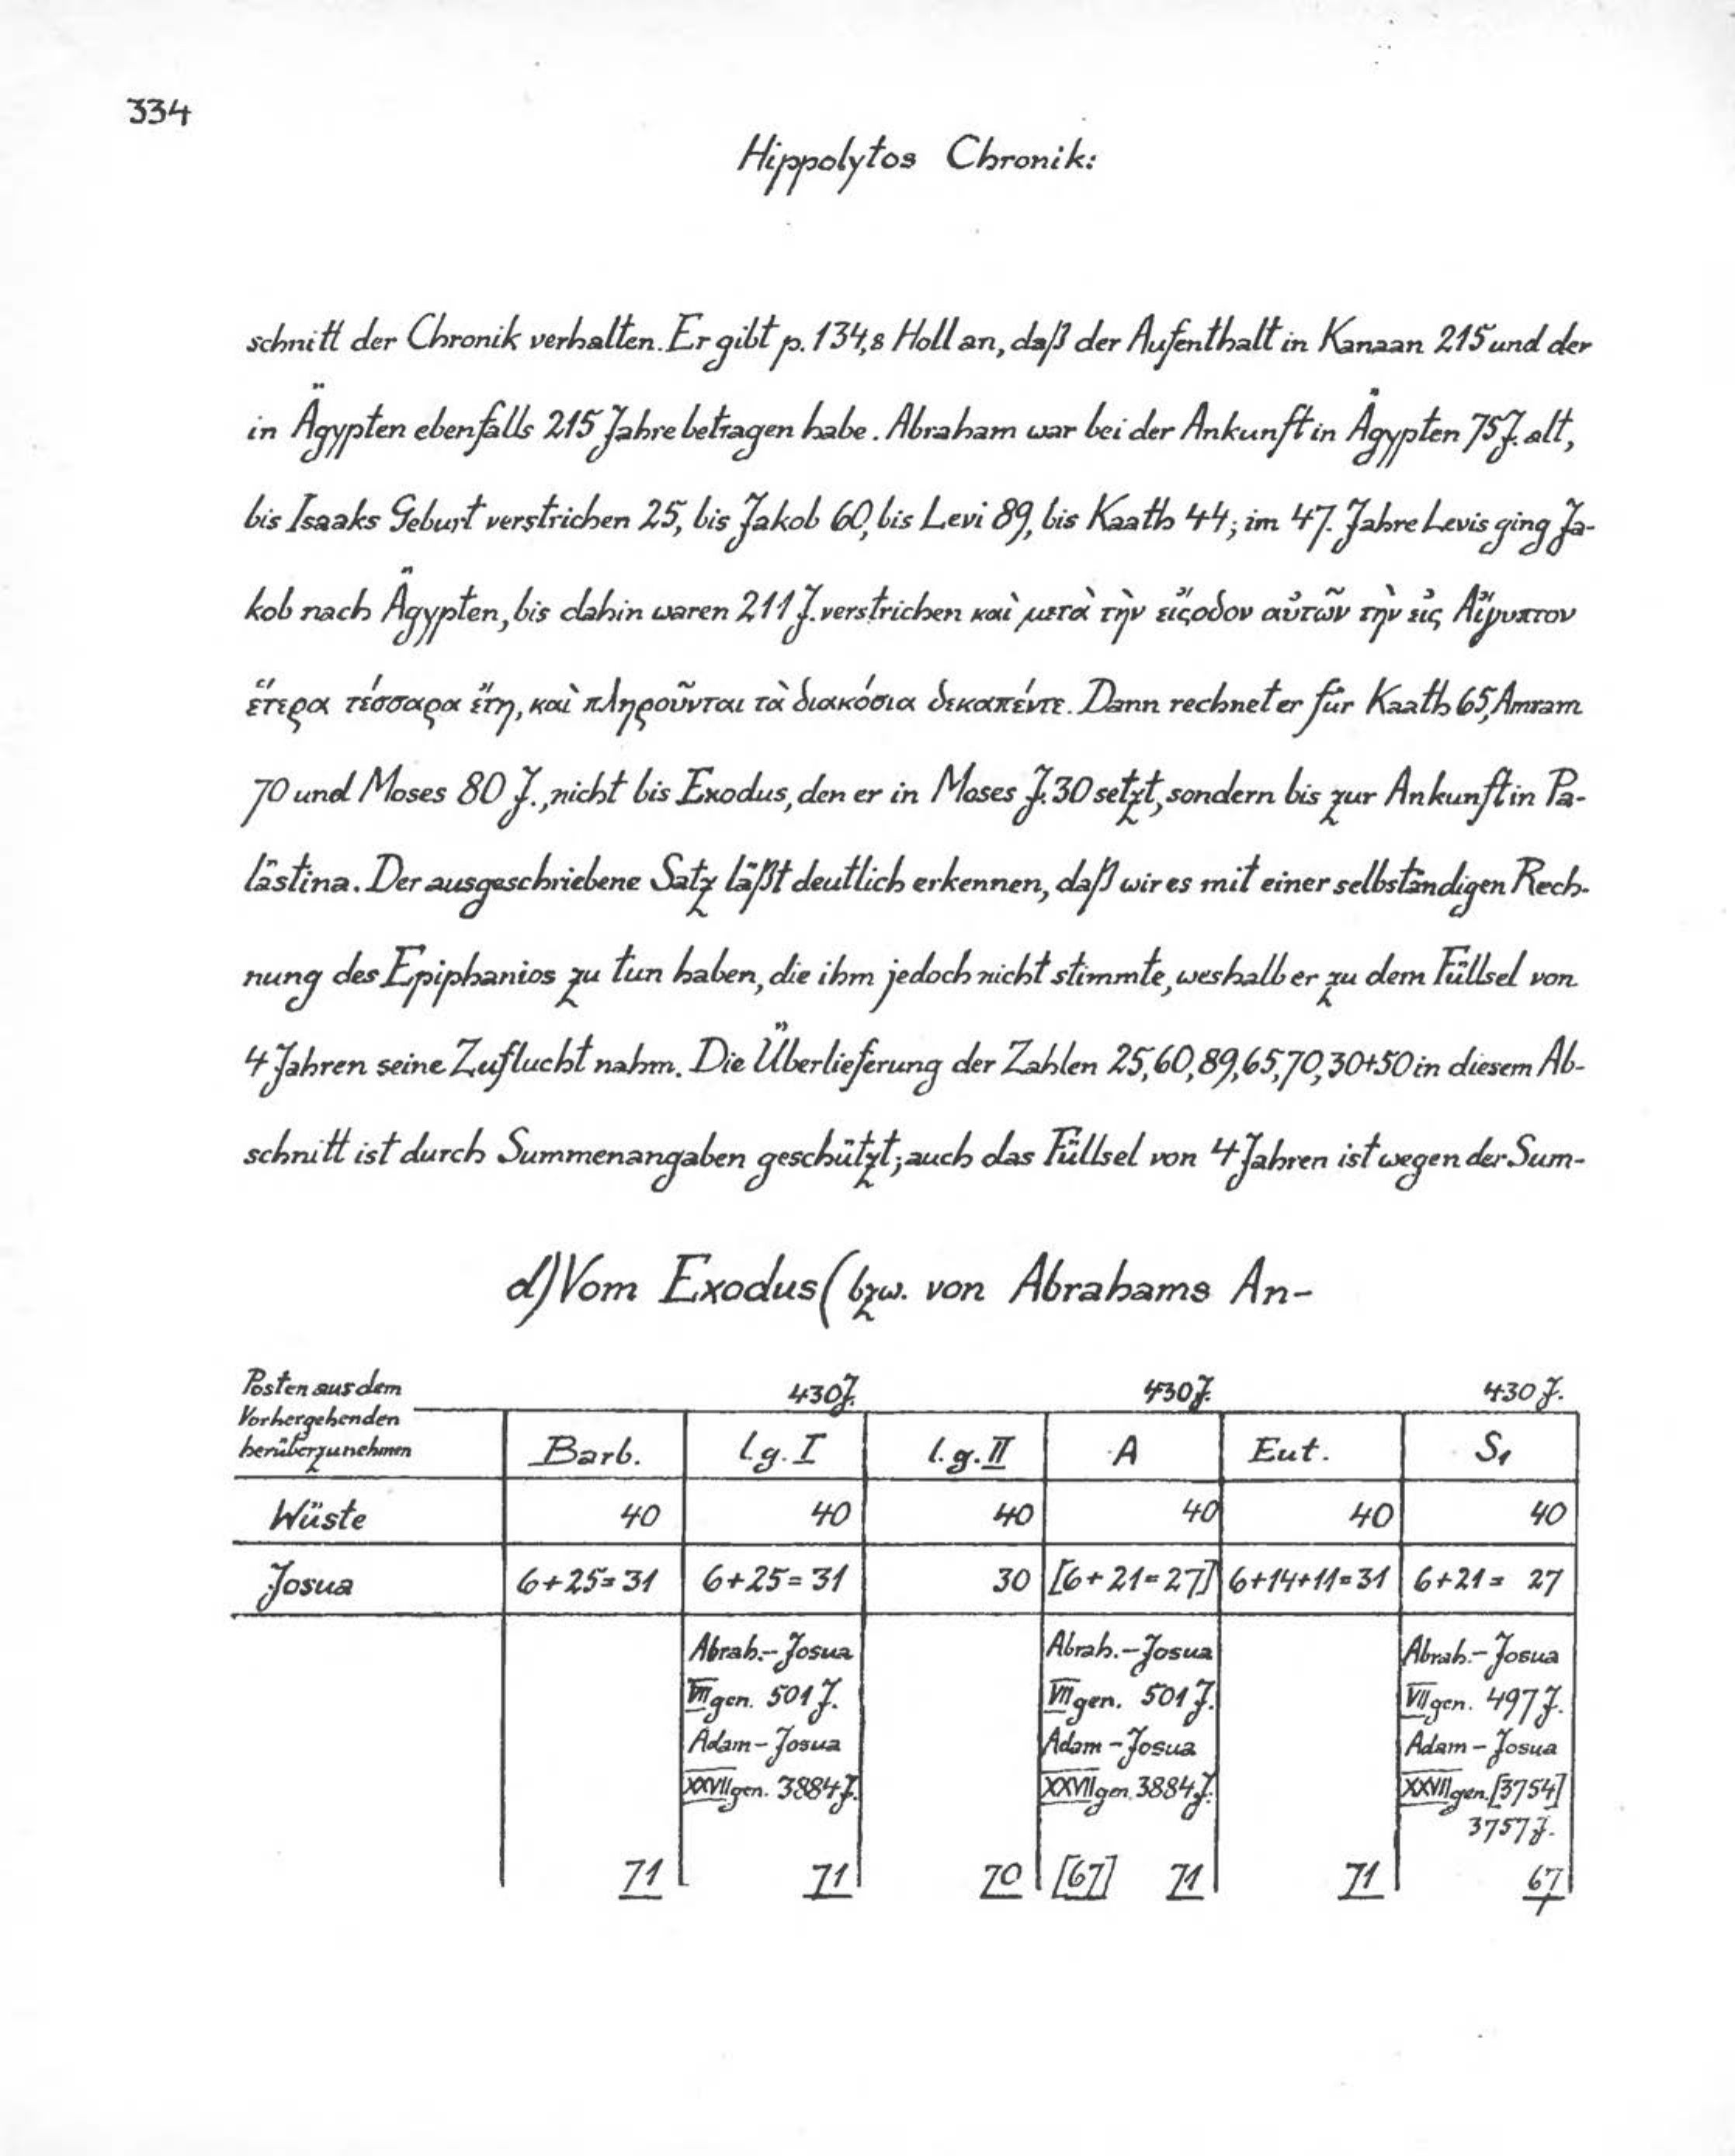 334
Hippolytos Chronik:
schnitt der Chronik verhalten. Er gibt p. 134,8 Holl an, daß der Aufenthalt in Kanaan 215 und der
in Ägypten ebenfalls 215 Jahre betragen habe. Abraham war bei der Ankunft in Ägypten 75 J. alt,
bis Isaaks Geburt verstrichen 25, bis Jakob 60, bis Levi 89, bis Kaath 44; im 47. Jahre Levis ging Ja-
kob nach Ägypten, bis dahin waren 211 J. verstrichen καὶ μετὰ τὴν εἴςοδον αὐτῶν τὴν εἰς Αἴγυπτον
ἕτερα τέσσαρα ἔτη, καὶ πληροῦνται τὰ διακόσια δεκαπέντε. Dann rechnet er für Kaath 65, Amram
70 und Moses 80 J., nicht bis Exodus, den er in Moses J. 30 setzt, sondern bis zur Ankunft in Pa-
lästina. Der ausgeschriebene Satz läßt deutlich erkennen, daß wir es mit einer selbständigen Rech-
nung des Epiphanios zu tun haben, die ihm jedoch nicht stimmte, weshalb er zu dem Füllsel von
4 Jahren seine Zuflucht nahm. Die Überlieferung der Zahlen 25, 60, 89, 65, 70, 30+50 in diesem Ab-
schnitt ist durch Summenangaben geschützt; auch das Füllsel von 4 Jahren ist wegen der Sum-
d) Vom Exodus (bzw. von Abrahams An-
Posten aus dem 430 J. 430 J. 430 J.
Vorhergehenden
herüberzunehmen Barb. l.g. I l.g. II A Eut. S1
Wüste 40 40 40 40 40 40
Josua 6+25=31 6+25=31 30 [6+21=27] 6+14+11=31 6+21= 27
Abrah.-Josua Abrah.-Josua Abrah.-Josua
VII gen. 501 J. VII gen. 501 J. VII gen. 497 J.
Adam-Josua Adam-Josua Adam-Josua
XXVII gen. 3884 J. XXVII gen. 3884 J. XXVII gen. [3754]
3757 J.
71 71 70 [67] 71 71 67